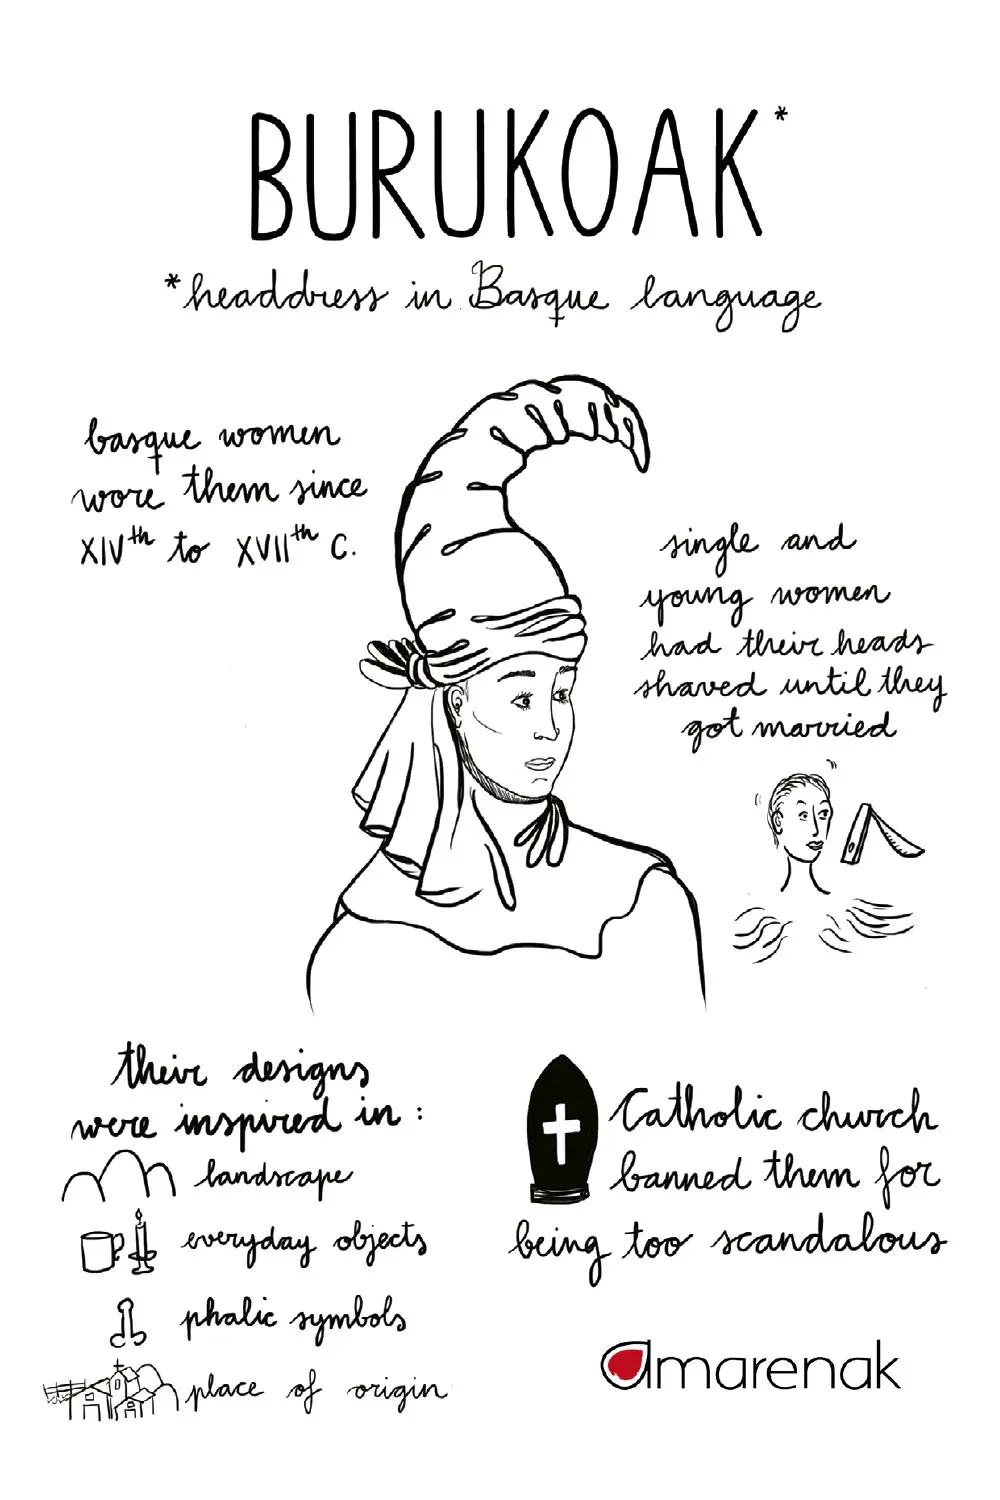 BURUKOAK*
*headdress in Basque language
basque women
wore them since
XIVth to XVIIth C.
single and
young women
had their heads
shaved until they
got married
their designs
were inspired in:
landscape
everyday objects
phalic symbols
place of origin
Catholic church
banned them for
being too scandalous
amarenak